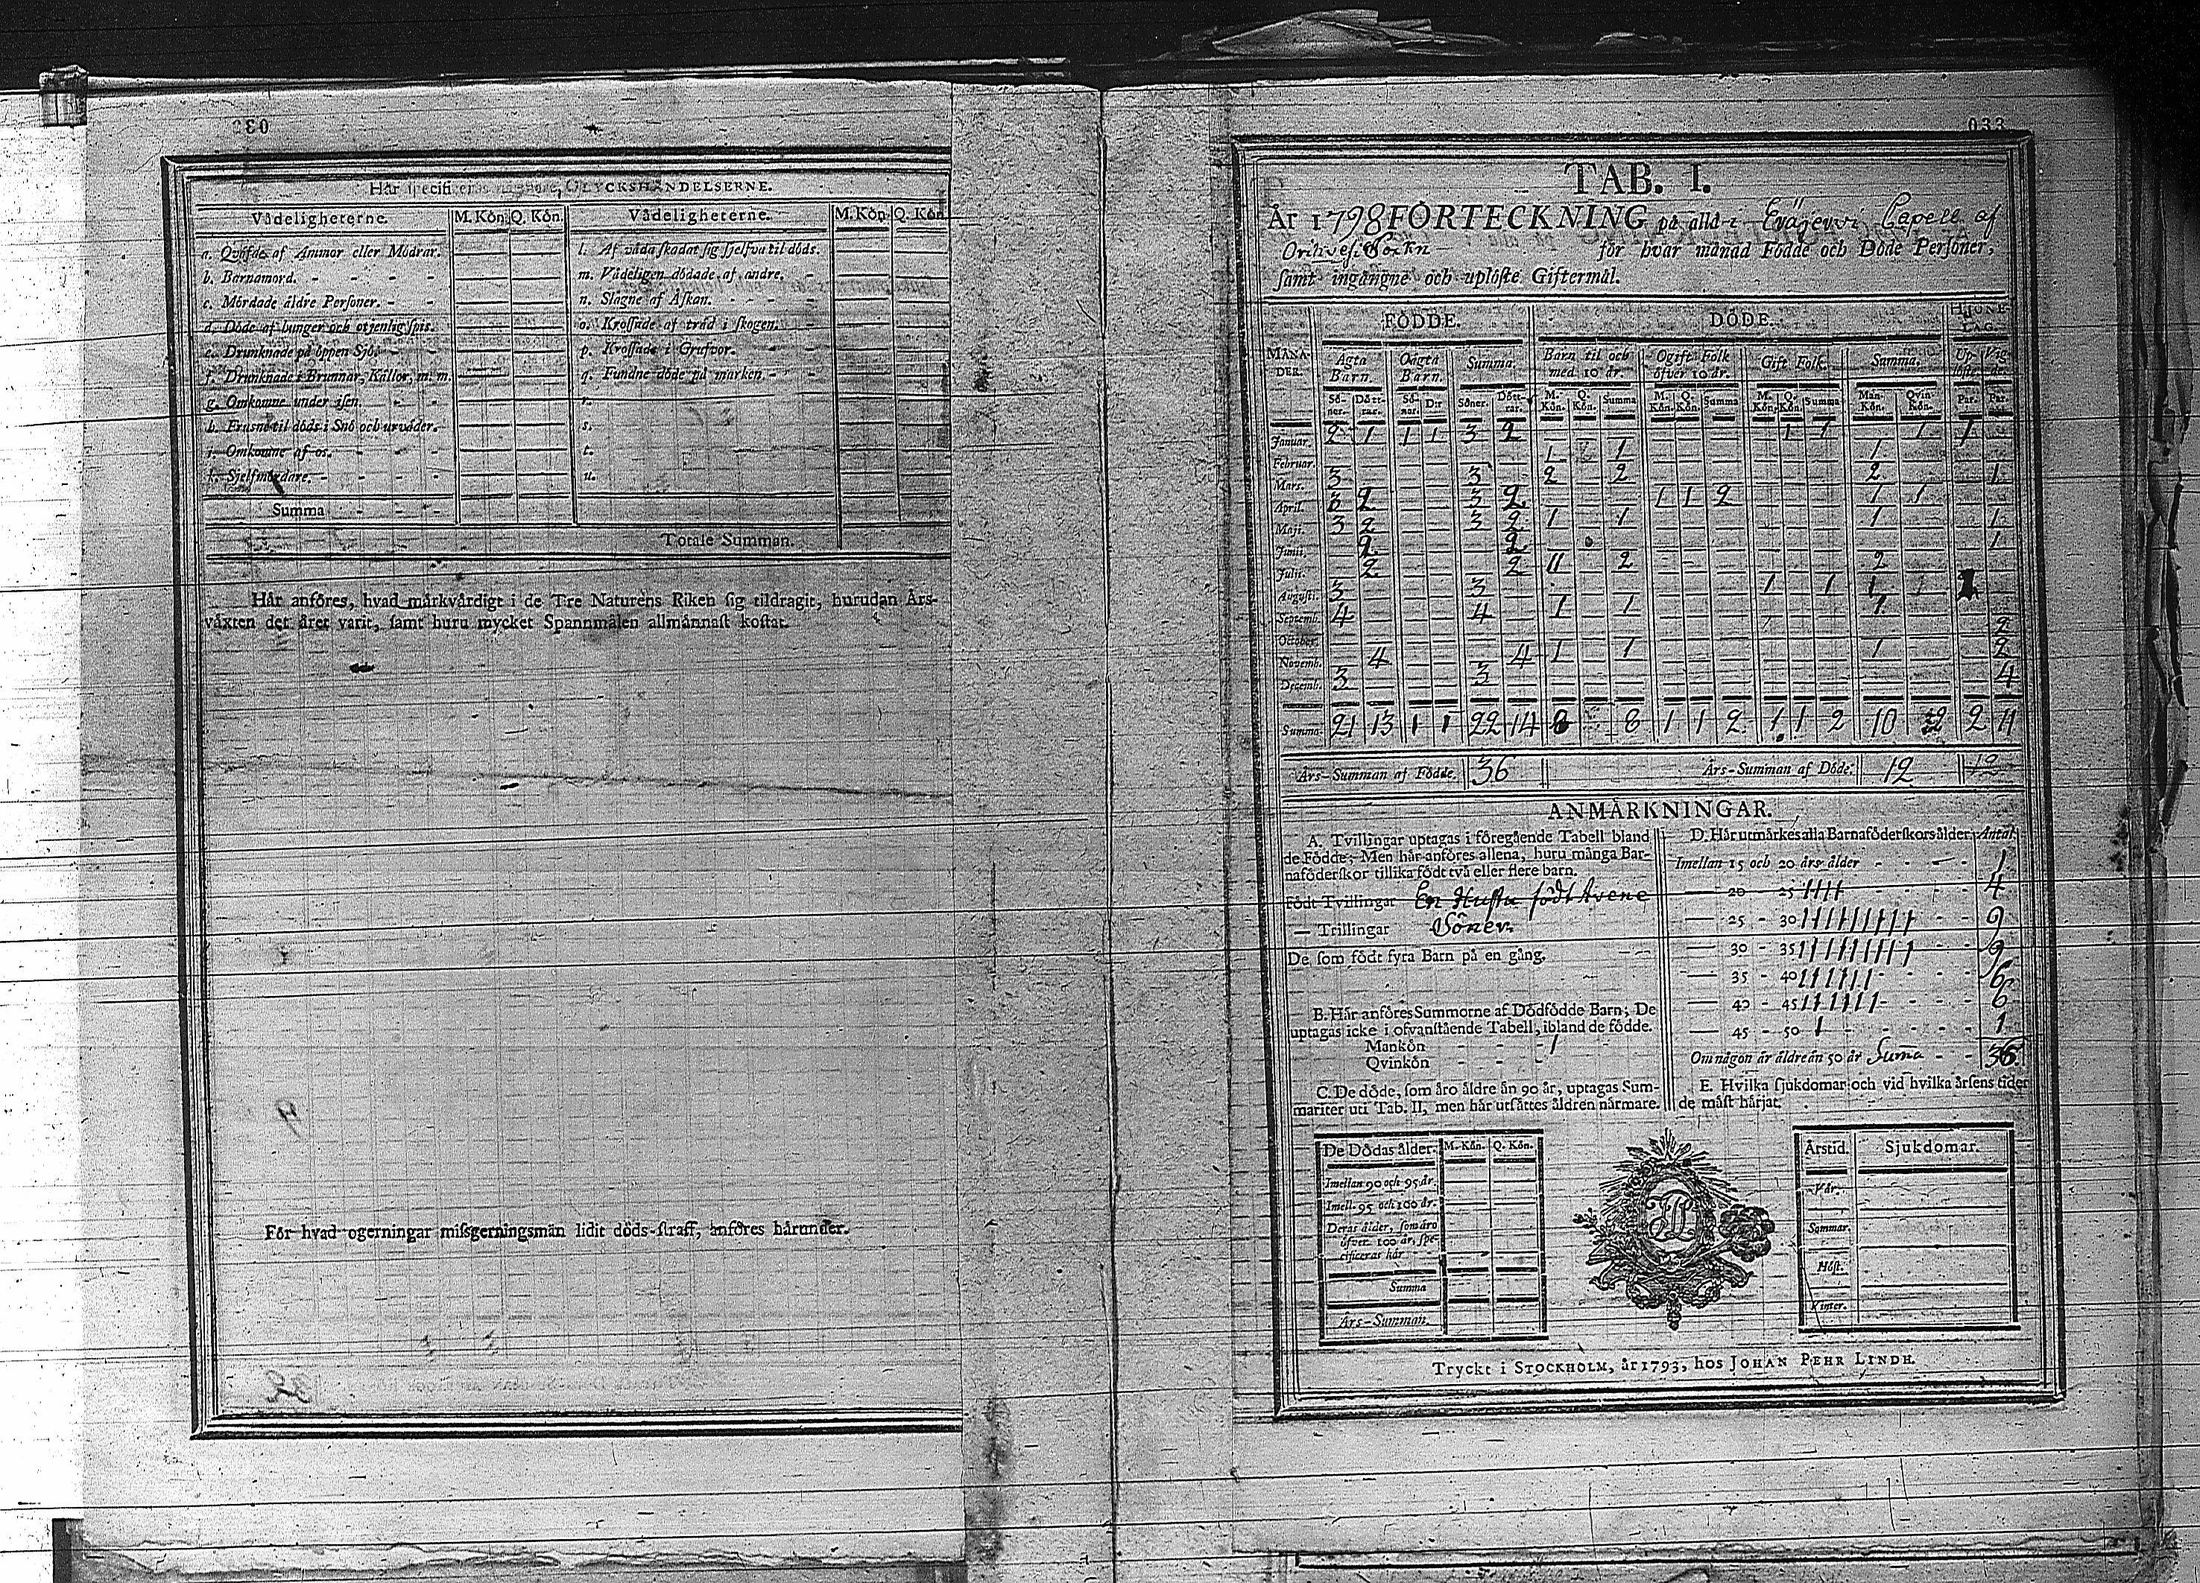 Här specificeras nägnare, OLYCKSHÄNDELSERNE.
Vådeligheterne. M. Kön. Q. Kön. Vådeligheterne. M. Kön. Q. Kön.
a. Qväfde af Ammor eller Mödrar. l. Af våda skadat sig sjelfva til döds.
b. Barnamord. m. Vådeligen dödade af andre.
c. Mördade äldre Personer. n. Slagne af Åskan.
d. Döde af hunger och otjenlig spis. o. Krossade af träd i skogen.
e. Drunknade på öppen Sjö. p. Krossade i Grufvor.
f. Drunknade i Brunnar, Källor, m. m. q. Fundne döde på marken.
g. Omkomne under isen. r.
h. Frusne til döds i Snö och urväder. s.
i. Omkomne af os. t.
k. Sjelfmördare. u.
Summa
Totale Summan.
Här anföres, hvad märkvärdigt i de Tre Naturens Riken sig tildragit, hurudan Års-
växten det året varit, samt huru mycket Spannmålen allmännast kostat.
För hvad ogerningar missgerningsmän lidit döds-straff, anföres härunder.
033
TAB. I.
År 1798 FÖRTECKNING på alla i Eräjervi Capell af
Orihvesi Sockn för hvar månad Födde och Döde Personer,
samt ingångne och uplöste Giftermål.
FÖDDE. DÖDE. HJONE-LAG.
MÅNADER. Ägta Barn. Oägta Barn. Summa. Barn til och med 10 år. Ogift Folk öfver 10 år. Gift Folk. Summa. Uplöste. Vigde.
Söner. Döttrar. Sönar. Dr Söner. Döttrar. M. Kön. Q. Kön. Summa M. Kön. Q. Kön. Summa M. Kön. Q. Kön. Summa Man-Kön. Qvin Kön. Par. Par.
Januar. 2 1 1 1 3 2 1 1 1 1
Februar. 1 1 1
Mars. 3 3 2 2 2 1
April. 3 2 3 2 1 1 2 1 1
Maji. 3 2 3 2 1 1 1 1
Junii. 2 2 1
Julii. 2 2 11 2 2
Augusti. 3 3 1 1 1 1
Septemb. 4 4 1 1 1
October. 2
Novemb. 4 4 1 1 1 2
Decemb. 3 3 4
Summa 21 13 1 1 22 14 8 8 1 1 2 1 1 2 10 2 2 11
Års-Summan af Födde. 36 Års-Summan af Döde. 12 12
ANMÄRKNINGAR.
A. Tvillingar uptagas i föregående Tabell bland
de Födde; Men här anföres allena, huru många Bar-
naföderskor tillika födt två eller flere barn.
Födt Tvillingar En Hustru födt tvene
— Trillingar Söner.
De som födt fyra Barn på en gång.
B. Här anföres Summorne af Dödfödde Barn; De
uptagas icke i ofvanstående Tabell, ibland de födde.
Mankön - - - 1
Qvinkön - - -
C. De döde, som äro äldre än 90 år, uptagas Sum-
mariter uti Tab. II, men här utsättes åldren närmare.
D. Här utmärkes alla Barnaföderskors ålder. Antal.
Imellan 15 och 20 års ålder - - - 1
— 20 - 25 IIII 4
— 25 - 30 IIIIIIIII 9
— 30 - 35 IIIIIIIII 9
— 35 - 40 IIIIII 6
— 40 - 45 IIIIII 6
— 45 - 50 I 1
Om någon är äldre än 50 år Suma - - 36
E. Hvilka sjukdomar och vid hvilka årsens tider
de mäst härjat.
De Dödas ålder. M. Kön. Q. Kön.
Imellan 90 och 95 år.
Imell. 95 och 100 år.
Deras ålder, som äro
öfver 100 år, spe-
cificeras här
Summa
Års-Summan.
Årstid. Sjukdomar.
Vår.
Sommar.
Höst.
Vinter.
Tryckt i STOCKHOLM, år 1793, hos JOHAN PEHR LINDH.